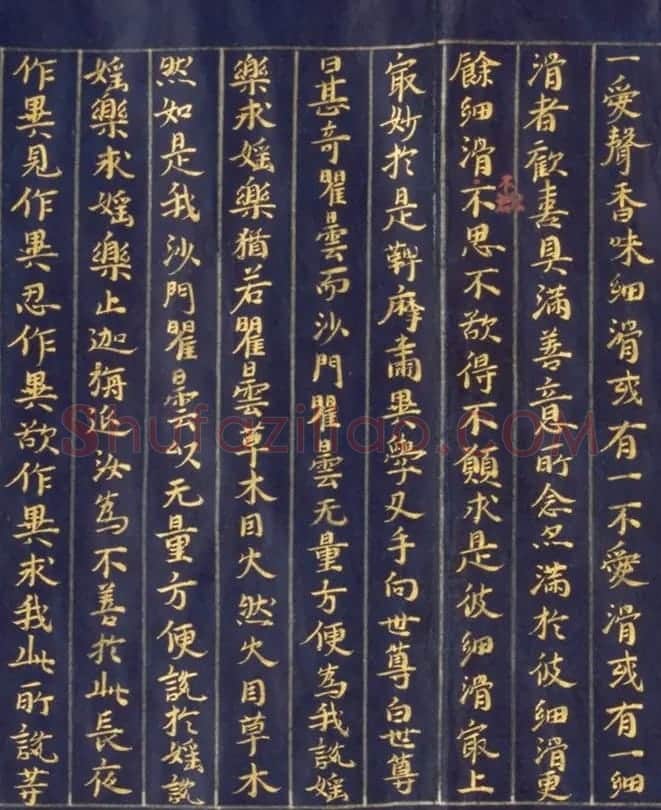 一愛聲香味細滑或有一不愛滑或有一細
滑者歡喜具滿善意所念滿於彼細滑更
餘細滑不思不欲得不願求是彼細滑㝡上
㝡妙於是鞞摩肅異學叉手向世尊白世尊
曰甚奇瞿曇而沙門瞿曇无量方便為我說婬
樂求婬樂猶若瞿曇草木因火然火因草木
然如是我沙門瞿曇以无量方便說於婬說
婬樂求婬樂止迦旃延汝為不善於此長夜
作異見作異忍作異欲作異求我此所說等
Shufaziliao.COM